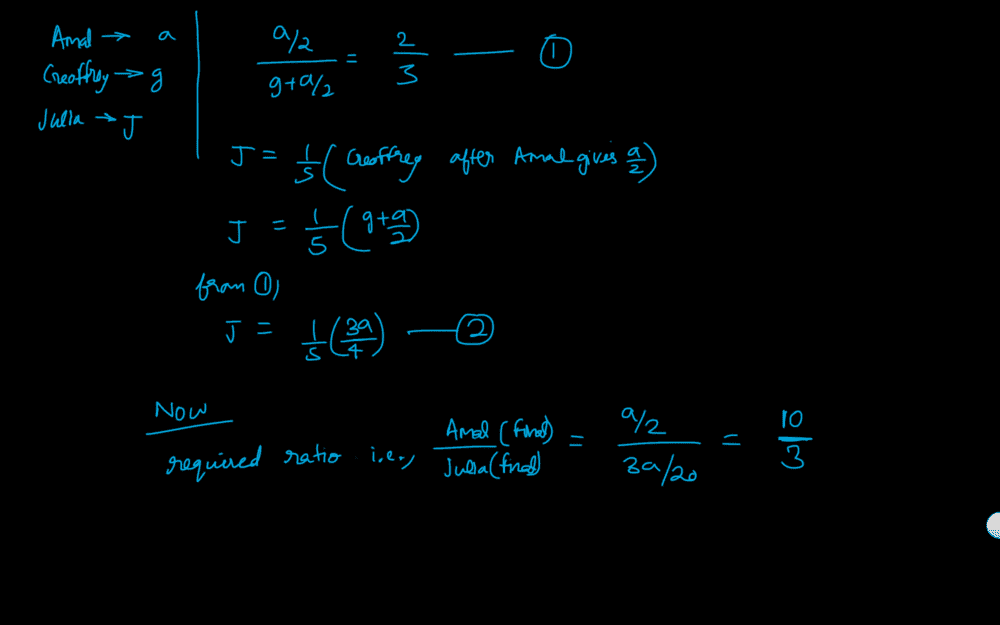 Amal → a
Geoffrey → g
Julia → J
a/2 / g+a/2 = 2/3 —— ①
J = 1/5 ( Geoffrey after Amal gives a/2 )
J = 1/5 ( g+a/2 )
from ①,
J = 1/5 ( 3a/4 ) —— ②
Now
required ratio i.e., Amal (final) / Julia (final) = a/2 / 3a/20 = 10/3